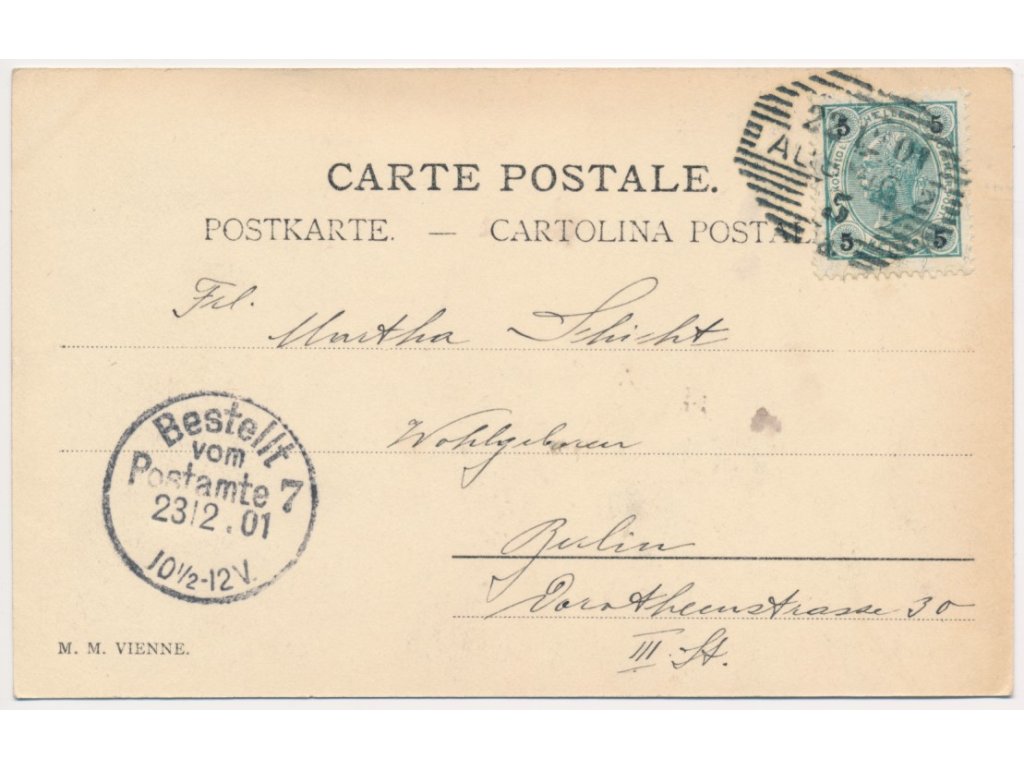 CARTE POSTALE.
POSTKARTE. — CARTOLINA POSTALE
5 5
5 5
Frl.
Martha Schicht
Wohlgeboren
Berlin
Dorotheenstrasse 30
III. St.
Bestellt
vom
Postamte 7
23/2.01
10½-12V.
M. M. VIENNE.